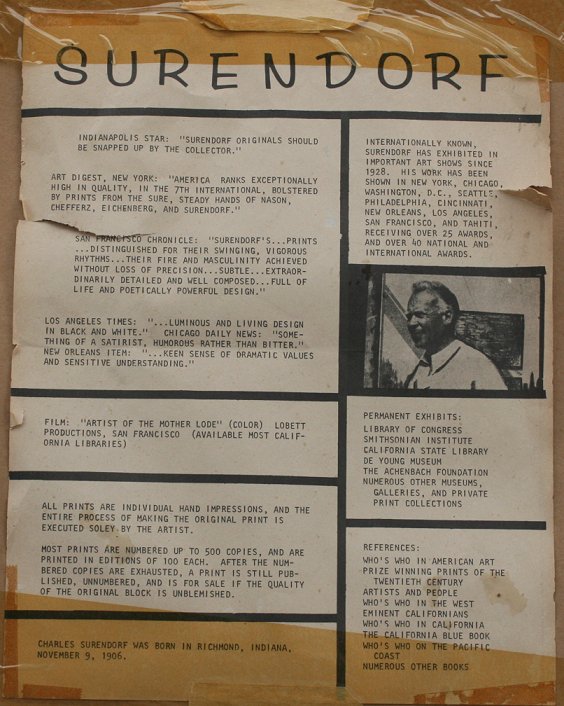 SURENDORF
INDIANAPOLIS STAR: "SURENDORF ORIGINALS SHOULD
BE SNAPPED UP BY THE COLLECTOR."
ART DIGEST, NEW YORK: "AMERICA RANKS EXCEPTIONALLY
HIGH IN QUALITY, IN THE 7TH INTERNATIONAL, BOLSTERED
BY PRINTS FROM THE SURE, STEADY HANDS OF NASON,
CHEFFERZ, EICHENBERG, AND SURENDORF."
SAN FRANCISCO CHRONICLE: "SURENDORF'S...PRINTS
...DISTINGUISHED FOR THEIR SWINGING, VIGOROUS
RHYTHMS...THEIR FIRE AND MASCULINITY ACHIEVED
WITHOUT LOSS OF PRECISION...SUBTLE...EXTRAOR-
DINARILY DETAILED AND WELL COMPOSED...FULL OF
LIFE AND POETICALLY POWERFUL DESIGN."
LOS ANGELES TIMES: "...LUMINOUS AND LIVING DESIGN
IN BLACK AND WHITE." CHICAGO DAILY NEWS: "SOME-
THING OF A SATIRIST, HUMOROUS RATHER THAN BITTER."
NEW ORLEANS ITEM: "...KEEN SENSE OF DRAMATIC VALUES
AND SENSITIVE UNDERSTANDING."
FILM: "ARTIST OF THE MOTHER LODE" (COLOR) LOBETT
PRODUCTIONS, SAN FRANCISCO (AVAILABLE MOST CALIF-
ORNIA LIBRARIES)
ALL PRINTS ARE INDIVIDUAL HAND IMPRESSIONS, AND THE
ENTIRE PROCESS OF MAKING THE ORIGINAL PRINT IS
EXECUTED SOLEY BY THE ARTIST.
MOST PRINTS ARE NUMBERED UP TO 500 COPIES, AND ARE
PRINTED IN EDITIONS OF 100 EACH. AFTER THE NUM-
BERED COPIES ARE EXHAUSTED, A PRINT IS STILL PUB-
LISHED, UNNUMBERED, AND IS FOR SALE IF THE QUALITY
OF THE ORIGINAL BLOCK IS UNBLEMISHED.
CHARLES SURENDORF WAS BORN IN RICHMOND, INDIANA,
NOVEMBER 9, 1906.
INTERNATIONALLY KNOWN,
SURENDORF HAS EXHIBITED IN
IMPORTANT ART SHOWS SINCE
1928. HIS WORK HAS BEEN
SHOWN IN NEW YORK, CHICAGO,
WASHINGTON, D.C., SEATTLE,
PHILADELPHIA, CINCINNATI,
NEW ORLEANS, LOS ANGELES,
SAN FRANCISCO, AND TAHITI,
RECEIVING OVER 25 AWARDS,
AND OVER 40 NATIONAL AND
INTERNATIONAL AWARDS.
PERMANENT EXHIBITS:
LIBRARY OF CONGRESS
SMITHSONIAN INSTITUTE
CALIFORNIA STATE LIBRARY
DE YOUNG MUSEUM
THE ACHENBACH FOUNDATION
NUMEROUS OTHER MUSEUMS,
GALLERIES, AND PRIVATE
PRINT COLLECTIONS
REFERENCES:
WHO'S WHO IN AMERICAN ART
PRIZE WINNING PRINTS OF THE
TWENTIETH CENTURY
ARTISTS AND PEOPLE
WHO'S WHO IN THE WEST
EMINENT CALIFORNIANS
WHO'S WHO IN CALIFORNIA
THE CALIFORNIA BLUE BOOK
WHO'S WHO ON THE PACIFIC
COAST
NUMEROUS OTHER BOOKS